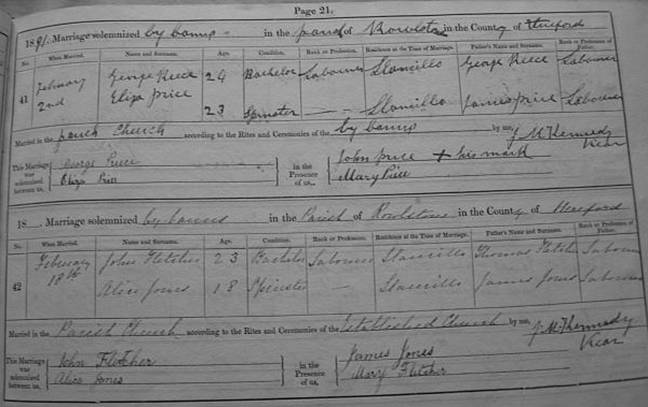 Page 21.
1891. Marriage solemnized by banns in the parish of Rowlston in the County of Hereford
No. When Married. Name and Surname. Age. Condition. Rank or Profession. Residence at the Time of Marriage. Father's Name and Surname. Rank or Profession of Father.
41 February 2nd George Reece 24 Bachelor Labourer Llancillo George Reece Labourer
Eliza Price 23 Spinster — Llancillo James Price Labourer
Married in the parish Church according to the Rites and Ceremonies of the by banns by me, J. M. Kennedy
Vicar
This Marriage was solemnized between us, George Reece
Eliza Price
in the Presence of us, John Price + his mark
Mary Price
18 . Marriage solemnized by banns in the Parish of Rowlstone in the County of Hereford
No. When Married. Name and Surname. Age. Condition. Rank or Profession. Residence at the Time of Marriage. Father's Name and Surname. Rank or Profession of Father.
42 February 18th John Fletcher 23 Bachelor Labourer Llancillo Thomas Labourer
Alice Jones 18 Spinster — Llancillo James Jones Labourer
Married in the Parish Church according to the Rites and Ceremonies of the Established Church by me, J. M. Kennedy
Vicar
This Marriage was solemnized between us, John Fletcher
Alice Jones
in the Presence of us, James Jones
Mary Fletcher